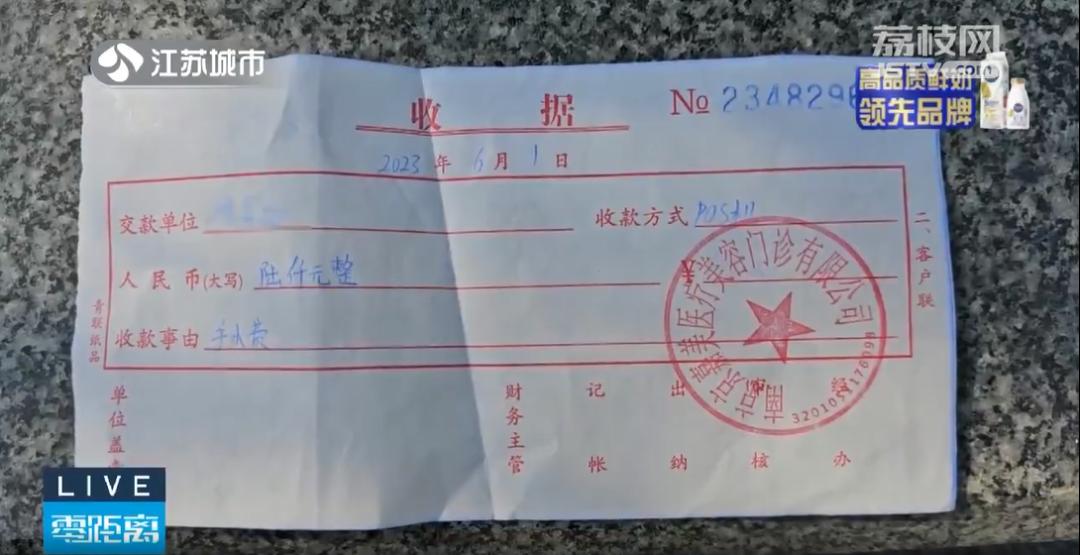 江苏城市
荔枝网
JSTV.com
高品质鲜奶
领先品牌
收 据
№ 234829
2023 年 6 月 1 日
交款单位
收款方式 POS机
人民币(大写) 陆仟元整
收款事由 手术费
二、客户联
青联纸品
南京嘉美医疗美容门诊有限公司
单位盖章
财务主管
记帐
出纳
审核
经办
LIVE
零距离